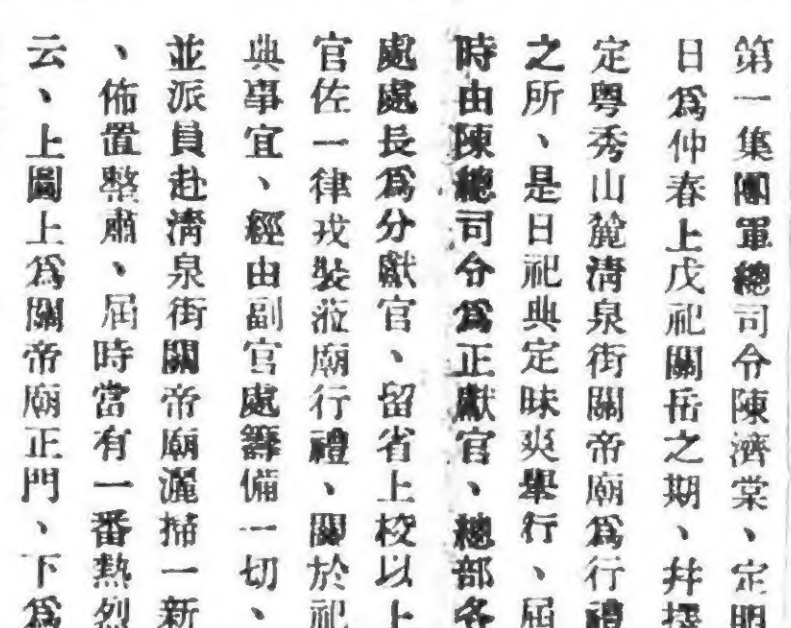 第一集團軍總司令陳濟棠、定明
日爲仲春上戊祀關岳之期、并擇
定粤秀山麓清泉街關帝廟爲行禮
之所、是日祀典定昧爽舉行、屆
時由陳總司令爲正獻官、總部各
處處長爲分獻官、留省上校以上
官佐一律戎裝蒞廟行禮、關於祀
典事宜、經由副官處籌備一切、
並派員赴清泉街關帝廟灑掃一新
、佈置整肅、屆時當有一番熱烈
云、上圖上爲關帝廟正門、下爲